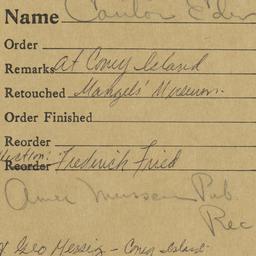 Name Cantor Eden
Order
Remarks at Coney Island
Retouched Mangels' Museum
Order Finished
Reorder
Reorder Frederick Fried
Amer Museum Pub.
Rec
Geo Messig - Coney Island